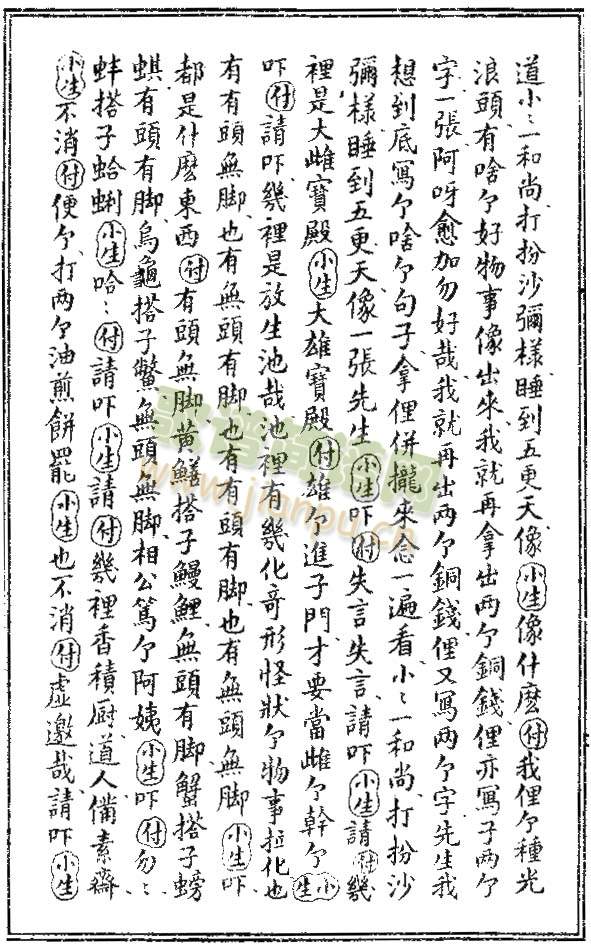 道小〻一和尚打扮沙彌樣睡到五更天像(小生)像什麽(付)我俚个種光
浪頭有啥个好物事像出來我就再拿出两个銅錢俚亦寫子两个
字一張阿呀愈加勿好哉我就再出两个銅錢俚又寫两个字先生我
想到底寫个啥个句子拿俚併攏來念一遍看小〻一和尚打扮沙
彌樣睡到五更天像一張先生(小生)吓(付)失言失言請吓(小生)請(付)幾
裡是大雌寶殿(小生)大雄寶殿(付)雄个進子門才要當雌个幹个(小生)
吓(付)請吓幾裡是放生池哉池裡有幾化奇形怪狀个物事拉化也
有有頭無脚也有無頭有脚也有有頭有脚也有無頭無脚(小生)吓
都是什麽東西(付)有頭無脚黄鱔搭子鰻鯉無頭有脚蟹搭子螃
蜞有頭有脚烏龜搭子鱉無頭無脚相公篤个阿姨(小生)吓(付)勿〻
蚌搭子蛤蜊(小生)哈〻(付)請吓(小生)請(付)幾裡香積厨道人備素齋
(小生)不消(付)便个打两个油煎餅罷(小生)也不消(付)虚邀哉請吓(小生)
歌谱简谱网
www.jianpu.cn